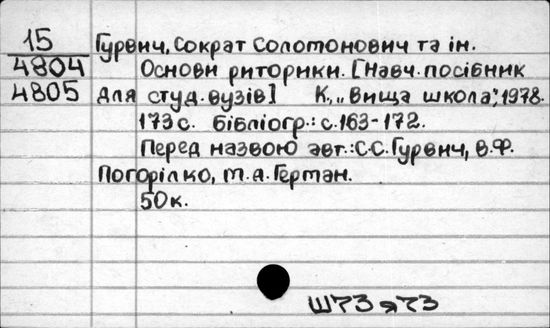 15 Гурвич, Сократ Соломонович та ін.
4804 Основи риторики. [Навч. посібник
4805 для студ. вузів] К., „Вища школа", 1978.
173 с. бібліогр.: с. 163-172.
Перед назвою авт.: С.С. Гурвич, В.Ф.
Погорілко, М.А. Герман.
50 к.
Ш73я73